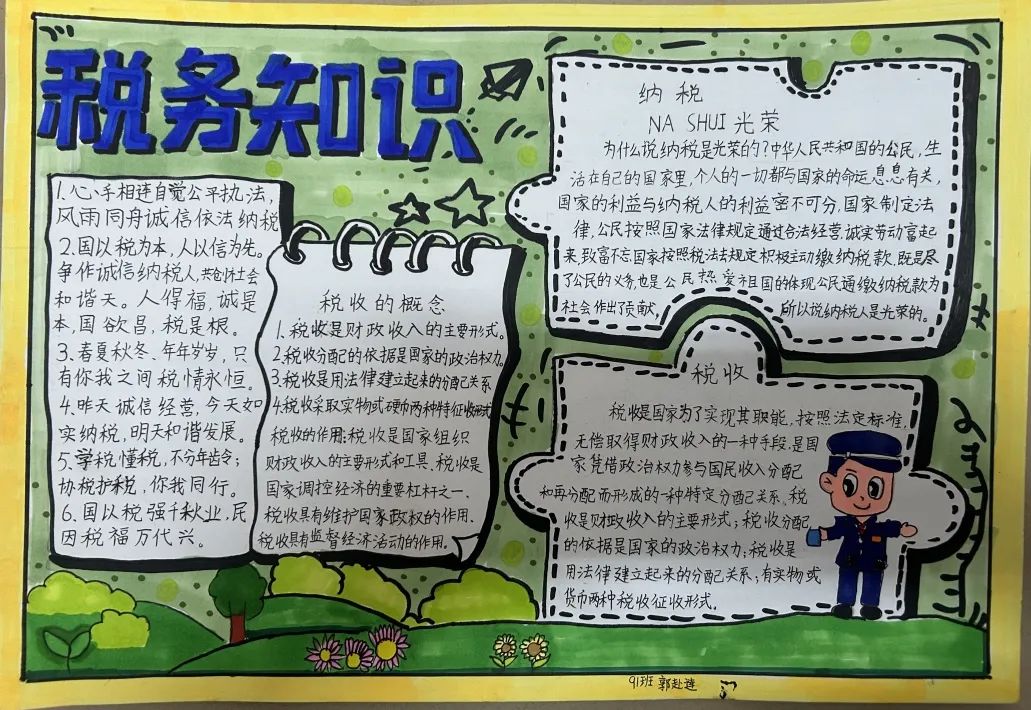 税务知识
1.心手相连自觉公平执法,
风雨同舟诚信依法纳税
2.国以税为本,人以信为先。
争作诚信纳税人,共创社会
和谐天。人得福,诚是
本,国欲昌,税是根。
3.春夏秋冬、年年岁岁,只
有你我之间税情永恒。
4.昨天诚信经营,今天如
实纳税,明天和谐发展。
5.学税懂税,不分年龄;
协税护税,你我同行。
6.国以税强千秋业,民
因税福万代兴。
税收的概念
1.税收是财政收入的主要形式。
2.税收分配的依据是国家的政治权力
3.税收是用法律建立起来的分配关系
4.税收采取实物或硬币两种特征收形式
税收的作用:税收是国家组织
财政收入的主要形式和工具、税收是
国家调控经济的重要杠杆之一、
税收具有维护国家政权的作用、
税收具有监督经济活动的作用。
纳税
NA SHUI 光荣
为什么说纳税是光荣的?中华人民共和国的公民,生
活在自己的国家里,个人的一切都与国家的命运息息有关,
国家的利益与纳税人的利益密不可分,国家制定法
律,公民按照国家法律规定通过合法经营,诚实劳动富起
来,致富不忘国家按照税法去规定积极主动缴纳税款,既是尽
了公民的义务,也是公民热爱祖国的体现公民通缴纳税款为
社会作出了贡献, 所以说纳税人是光荣的。
税收
税收是国家为了实现其职能,按照法定标准,
无偿取得财政收入的一种手段,是国
家凭借政治权力参与国民收入分配
和再分配而形成的一种特定分配关系、税
收是财政收入的主要形式;税收分配
的依据是国家的政治权力;税收是
用法律建立起来的分配关系;有实物或
货币两种税收征收形式.
91班 郭赴